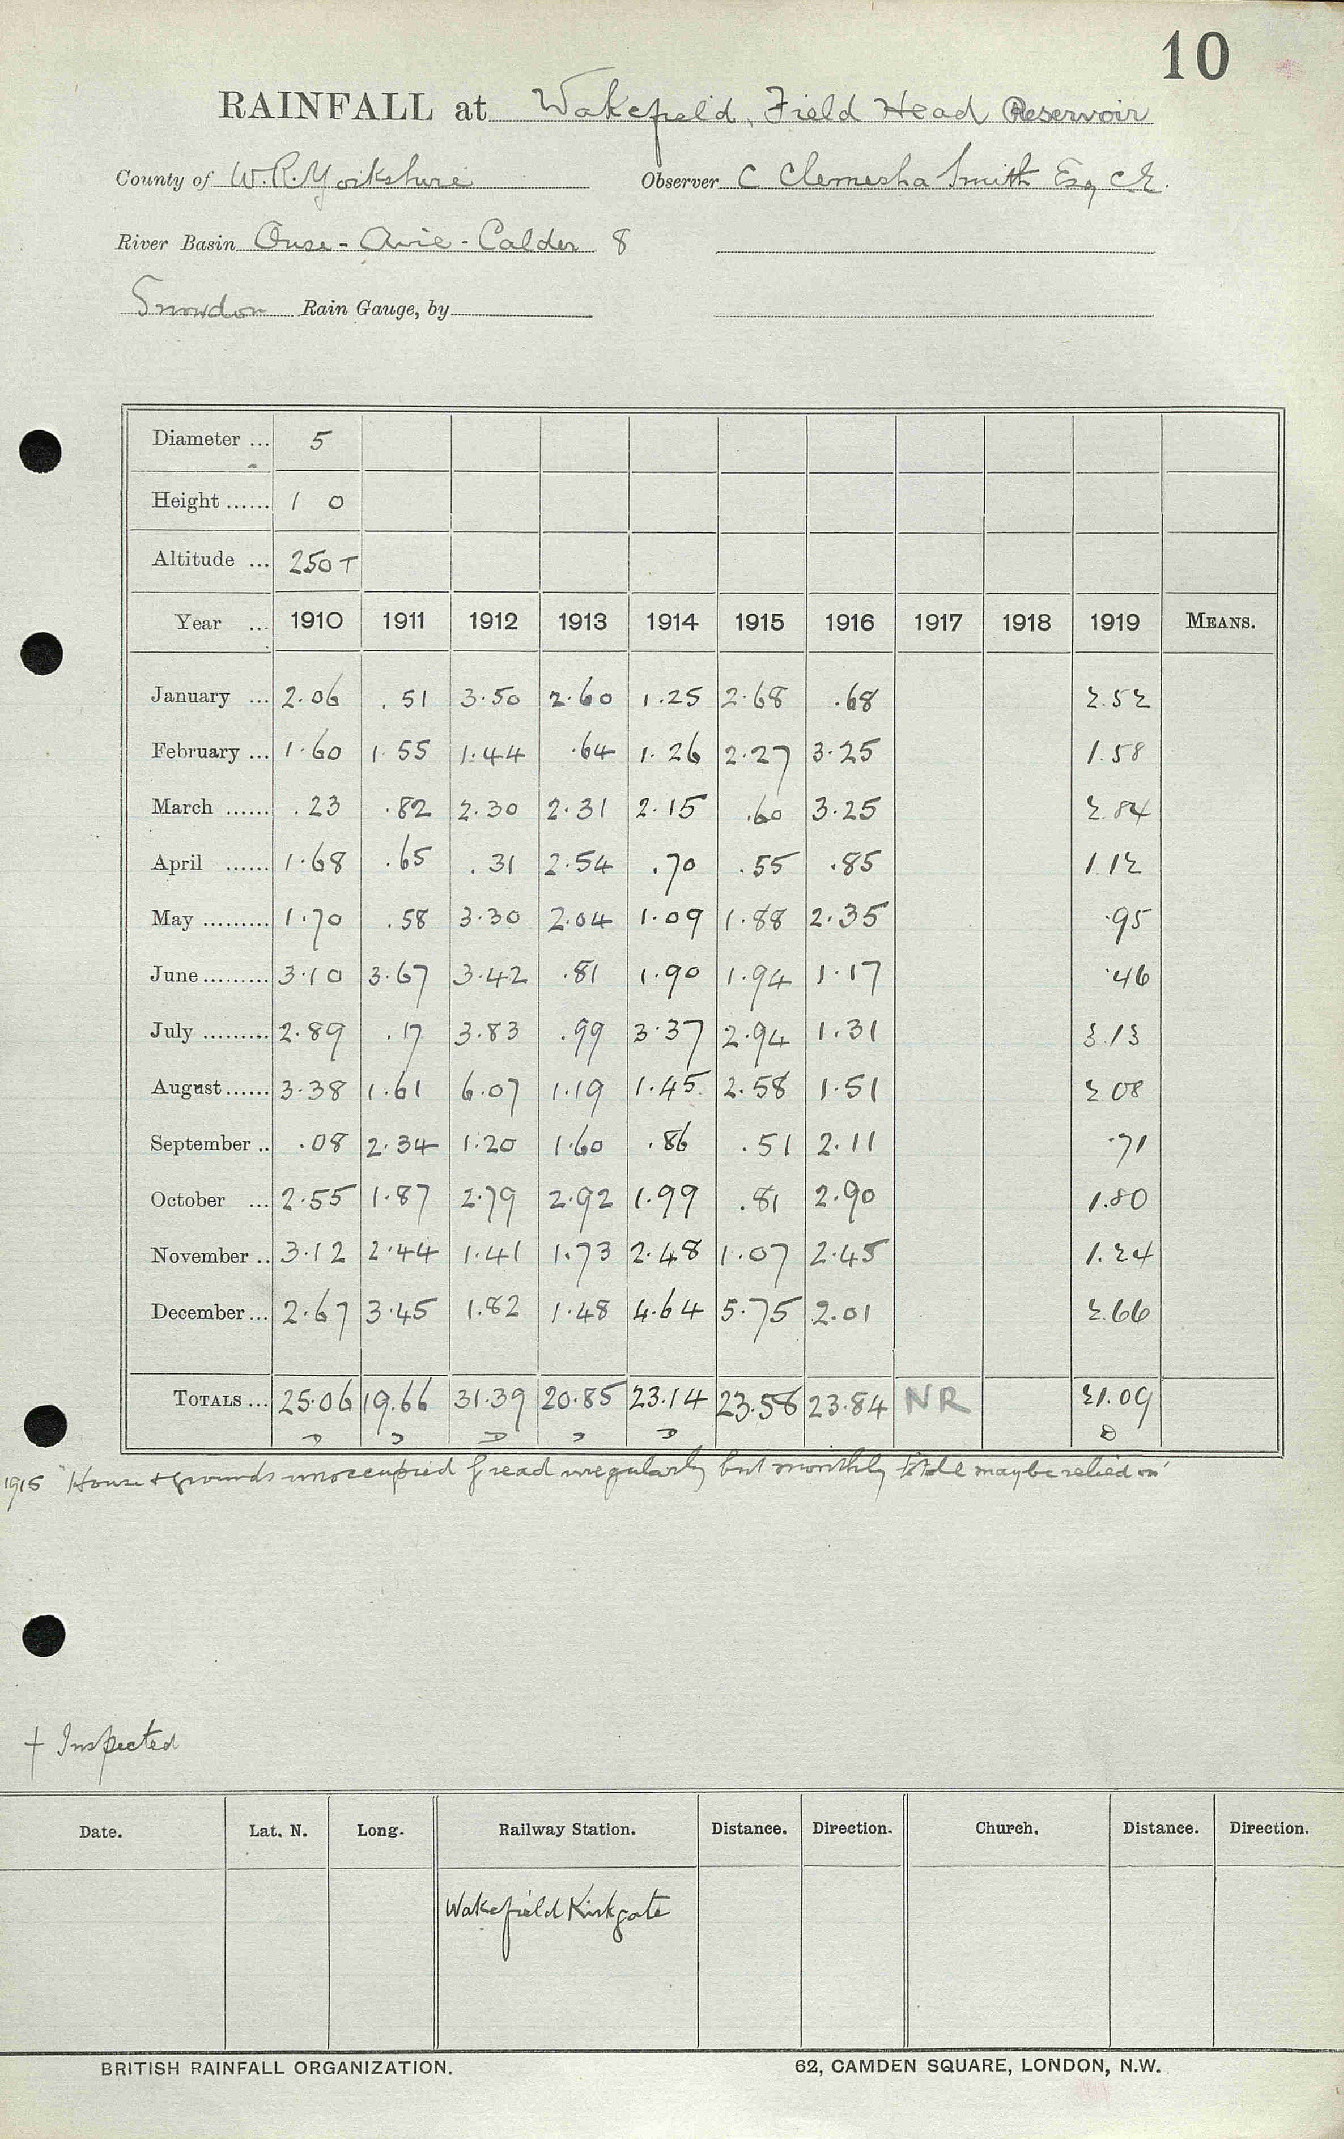 10
RAINFALL at Wakefield, Field Head Reservoir
County of W.R. Yorkshire Observer C Clemesha Smith Esq CE.
River Basin Ouse - Aire - Calder 8
Snowdon Rain Gauge, by
Diameter ... 5
Height ...... 1 0
Altitude ... 250 T
Year ... 1910 1911 1912 1913 1914 1915 1916 1917 1918 1919 MEANS.
January ... 2.06 .51 3.50 2.60 1.25 2.68 .68 2.52
February ... 1.60 1.55 1.44 .64 1.26 2.27 3.25 1.58
March ...... .23 .82 2.30 2.31 2.15 .60 3.25 2.84
April ...... 1.68 .65 .31 2.54 .70 .55 .85 1.12
May ......... 1.70 .58 3.30 2.04 1.09 1.88 2.35 .95
June ......... 3.10 3.67 3.42 .81 1.90 1.94 1.17 .46
July ......... 2.89 .17 3.83 .99 3.37 2.94 1.31 3.13
August ...... 3.38 1.61 6.07 1.19 1.45 2.58 1.51 2 08
September .. .08 2.34 1.20 1.60 .86 .51 2.11 .71
October ... 2.55 1.87 2.79 2.92 1.99 .81 2.90 1.80
November .. 3.12 2.44 1.41 1.73 2.48 1.07 2.45 1.24
December ... 2.67 3.45 1.82 1.48 4.64 5.75 2.01 2.66
TOTALS ... 25.06 19.66 31.39 20.85 23.14 23.58 23.84 NR 21.09
D D D D D D
1915 "House & grounds unoccupied read irregularly but monthly totals may be relied on"
† Inspected
Date. Lat. N. Long. Railway Station. Distance. Direction. Church. Distance. Direction.
Wakefield Kirkgate
BRITISH RAINFALL ORGANIZATION. 62, CAMDEN SQUARE, LONDON, N.W.